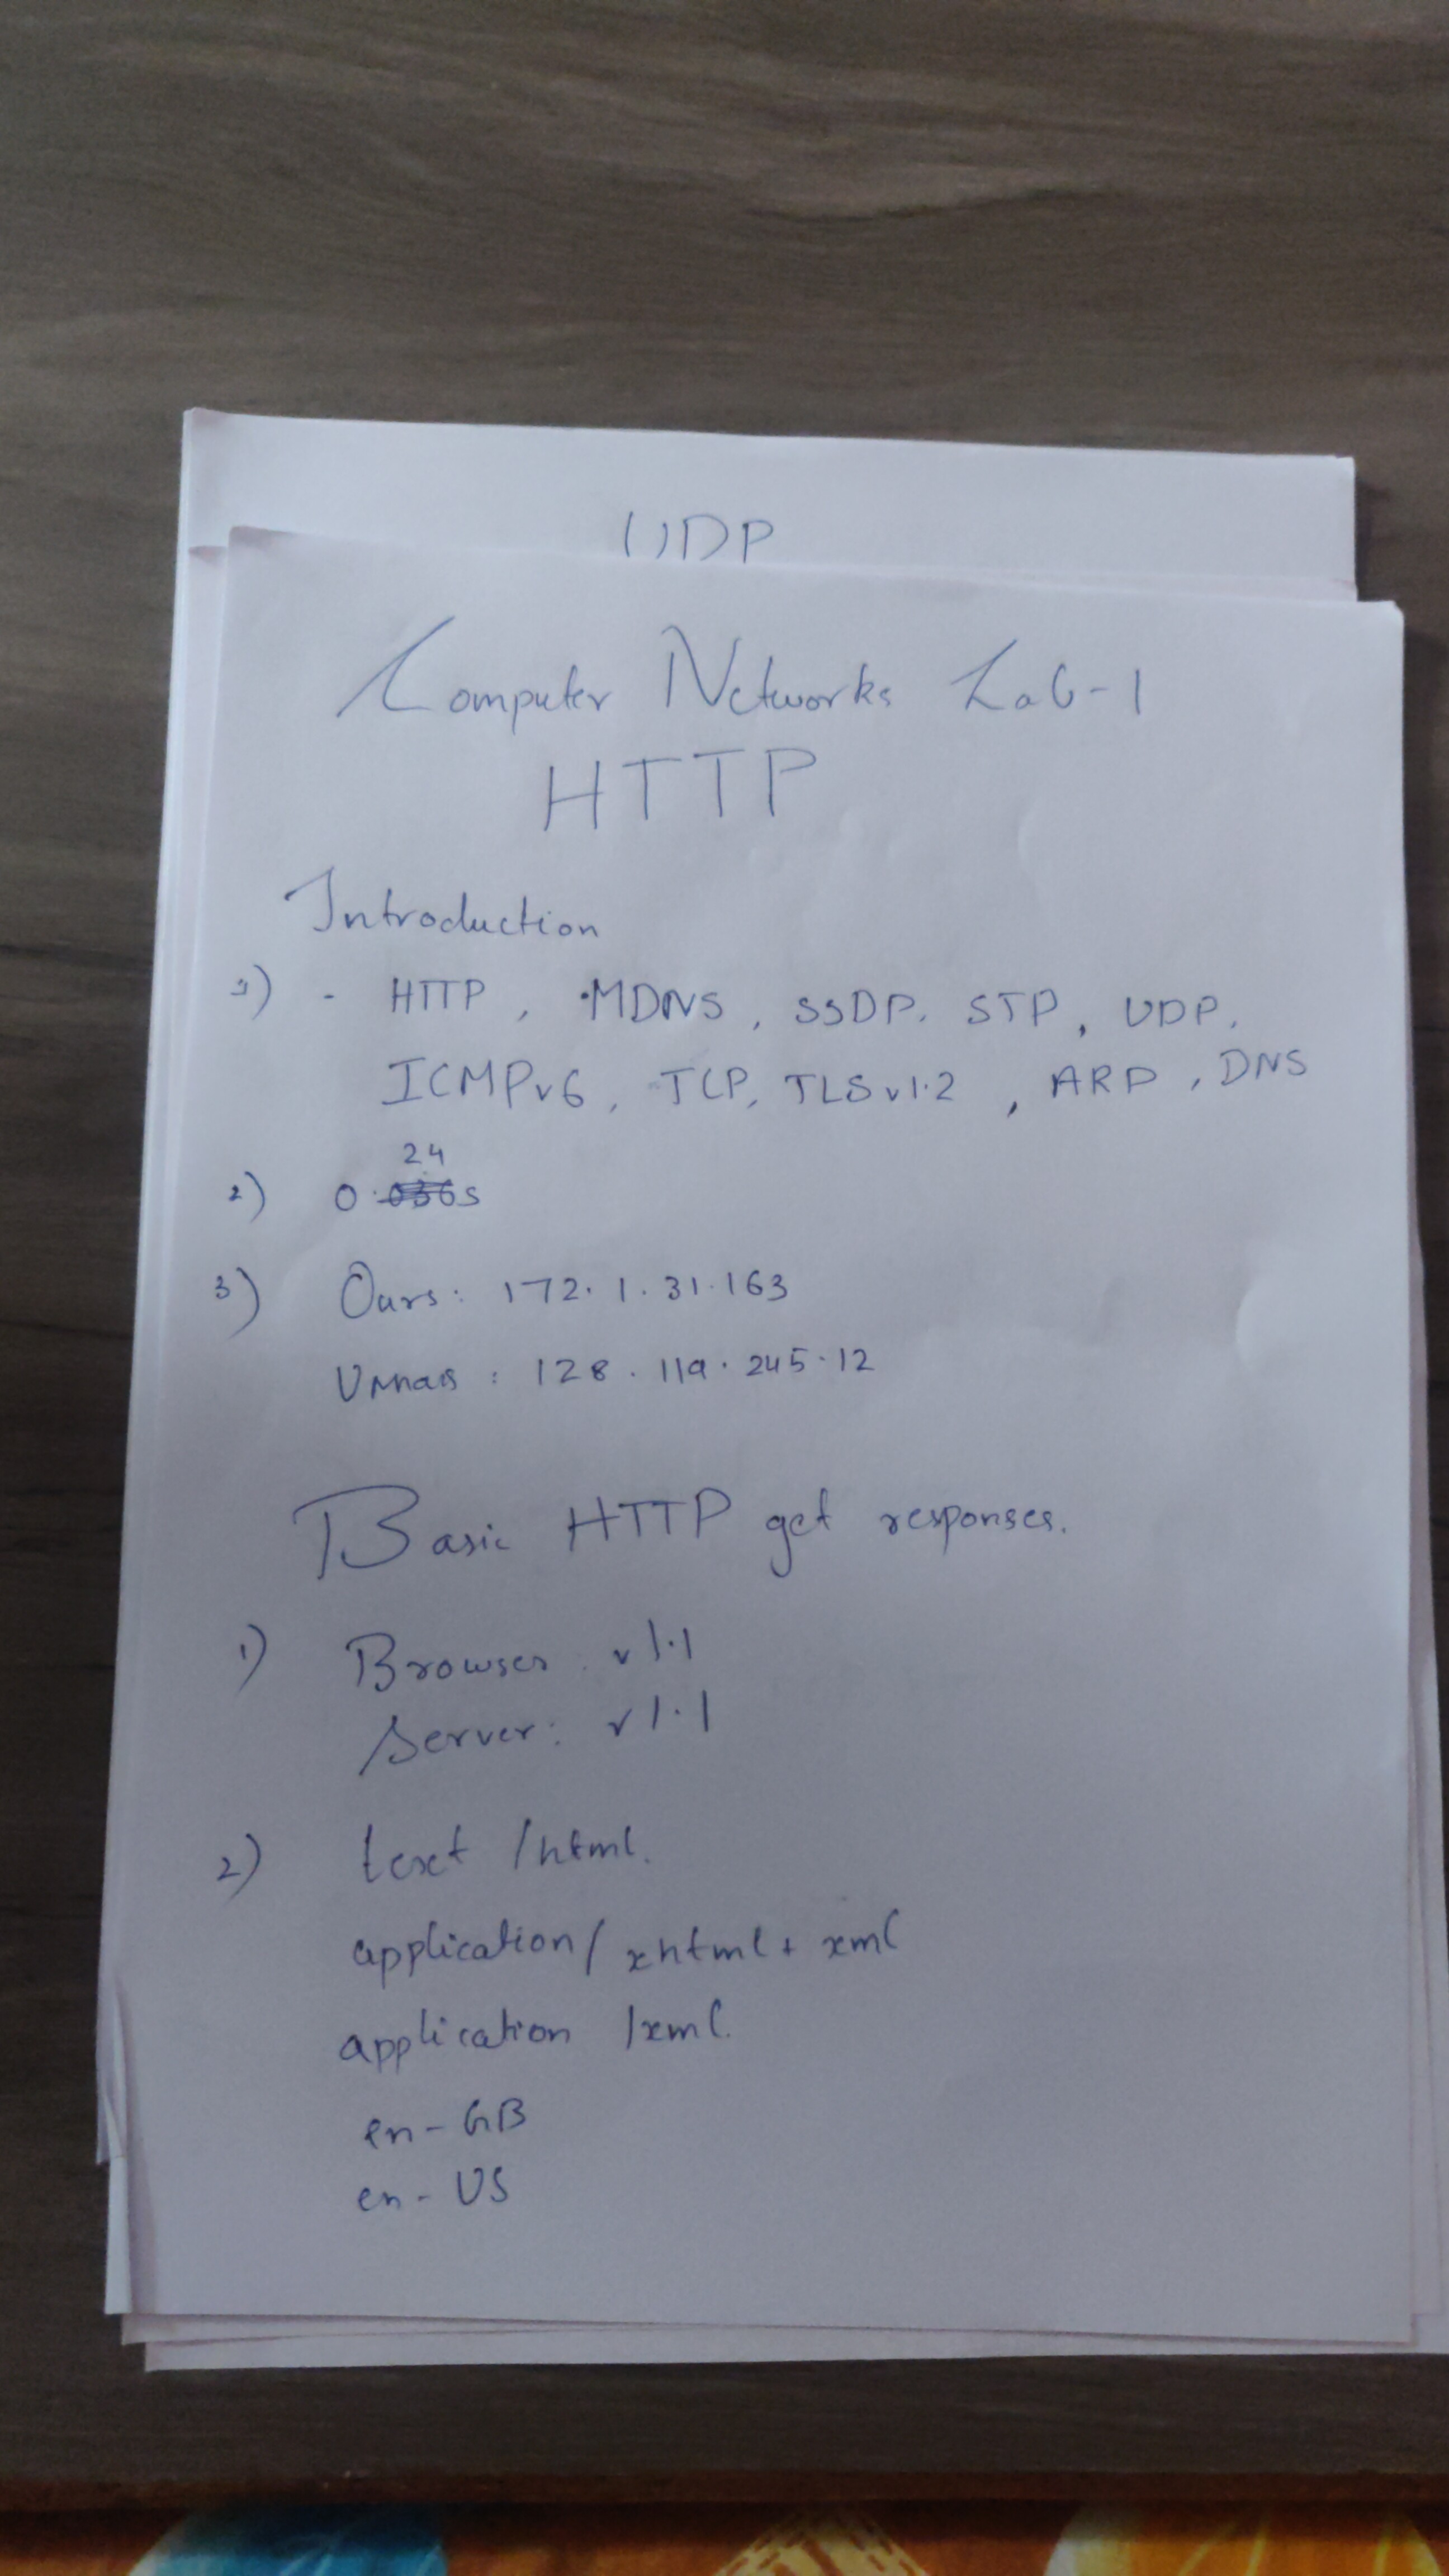 UDP
Computer Networks Lab-1
HTTP
Introduction
1) - HTTP, MDNS, SSDP, STP, UDP,
ICMPv6, TCP, TLSv1.2, ARP, DNS
24
2) 0.036s
3) Ours: 172.1.31.163
: 128.119.245.12
Basic HTTP get responses.
1) Browser: v1.1
Server: v1.1
2) text/html.
application/xhtml+xml
application/xml.
en-GB
en-US